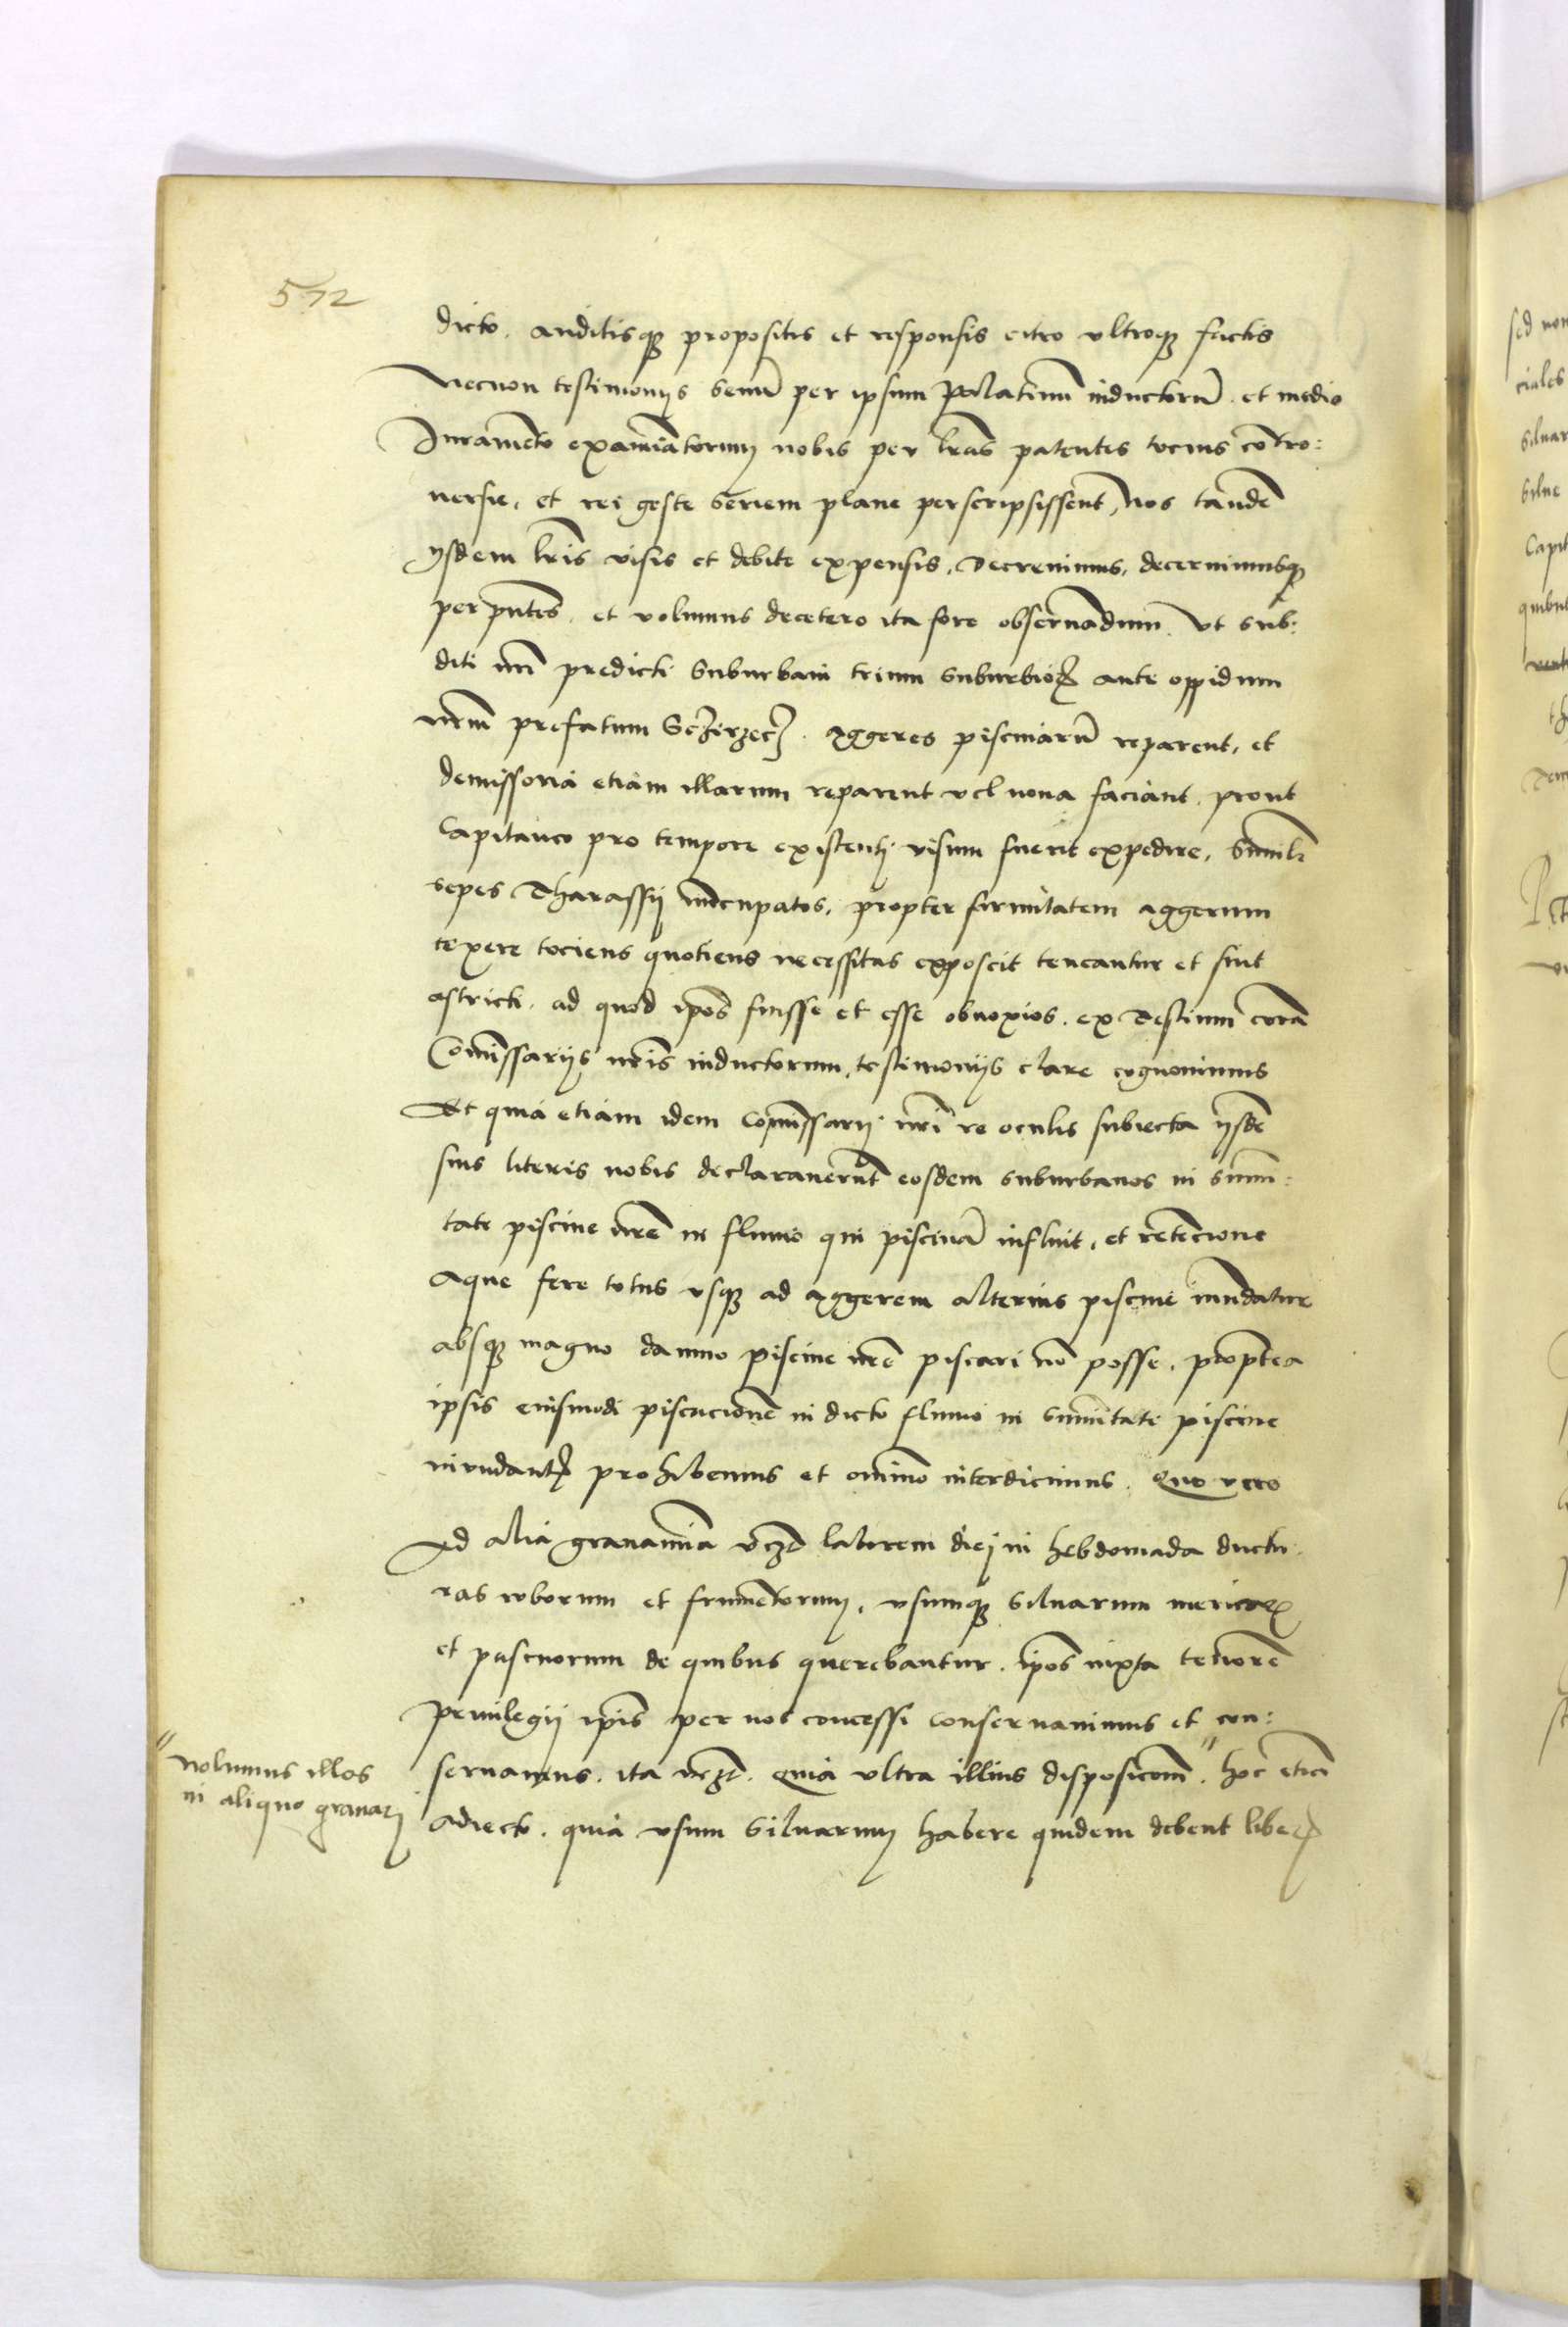 572
dicto. auditisq propositis et responsis citro vltroq factis
Necnon testimonijs senu per ipsum Palatinu inductoru. et medio
Juramento examiatorum nobis per lras patentes tocius contro:
uersie, et rei geste seriem plane perscripsissent, nos tande
ijsdem lris visis et debite expensis. Decreuimus, decernimusq
per pntes. et volumus decetero ita fore obseruadum. Vt sub:
diti nri predicti Suburbani trium suburbior ante oppidum
nrm prefatum Schirzecz. Aggeres piscinaru reparent, et
demissoria etiam illarum reparent vel noua faciant. prout
Capitaneo pro tempore existenti visum fuerit expedire, Similr
sepes Tharassij nuncupatos, propter firmitatem aggerum
texere tociens quotiens necessitas exposcit teneantur et sint
astricti. ad quod ipos fuisse et esse obnoxios. ex Testium cora
Comissarijs nris inductorum, testimonijs clare cognouimus
Et quia etiam idem Comissarij nri re oculis subiecta ijsde
suis literis nobis declarauerunt eosdem suburbanos in summi:
tate piscine nre in fluuio qui piscina influit, et retencione
Aque fere totus vsq ad aggerem alterius piscine inundatur
absq magno damno piscine nre piscari no posse. proptea
ipsis eiusmodi piscacione in dicto fluuio in sumitate piscine
inundantis prohibemus et omnino interdicimus. Quo vero
Ad alia grauamina vczt laborem diei in hebdomada ductu
ras roborum et frumentorum, vsumq siluarum mericar
et pascuorum de quibus querebantur. ipos iuxta tenore
priuilegij ipis per nos concessi conseruauimus et con:
seruamus. ita vczt. Quia vltra illius disposicom " hoc etia
" nolumus illos
in aliquo grauari
adiecto. quia vsum Siluarum habere quidem debent liber